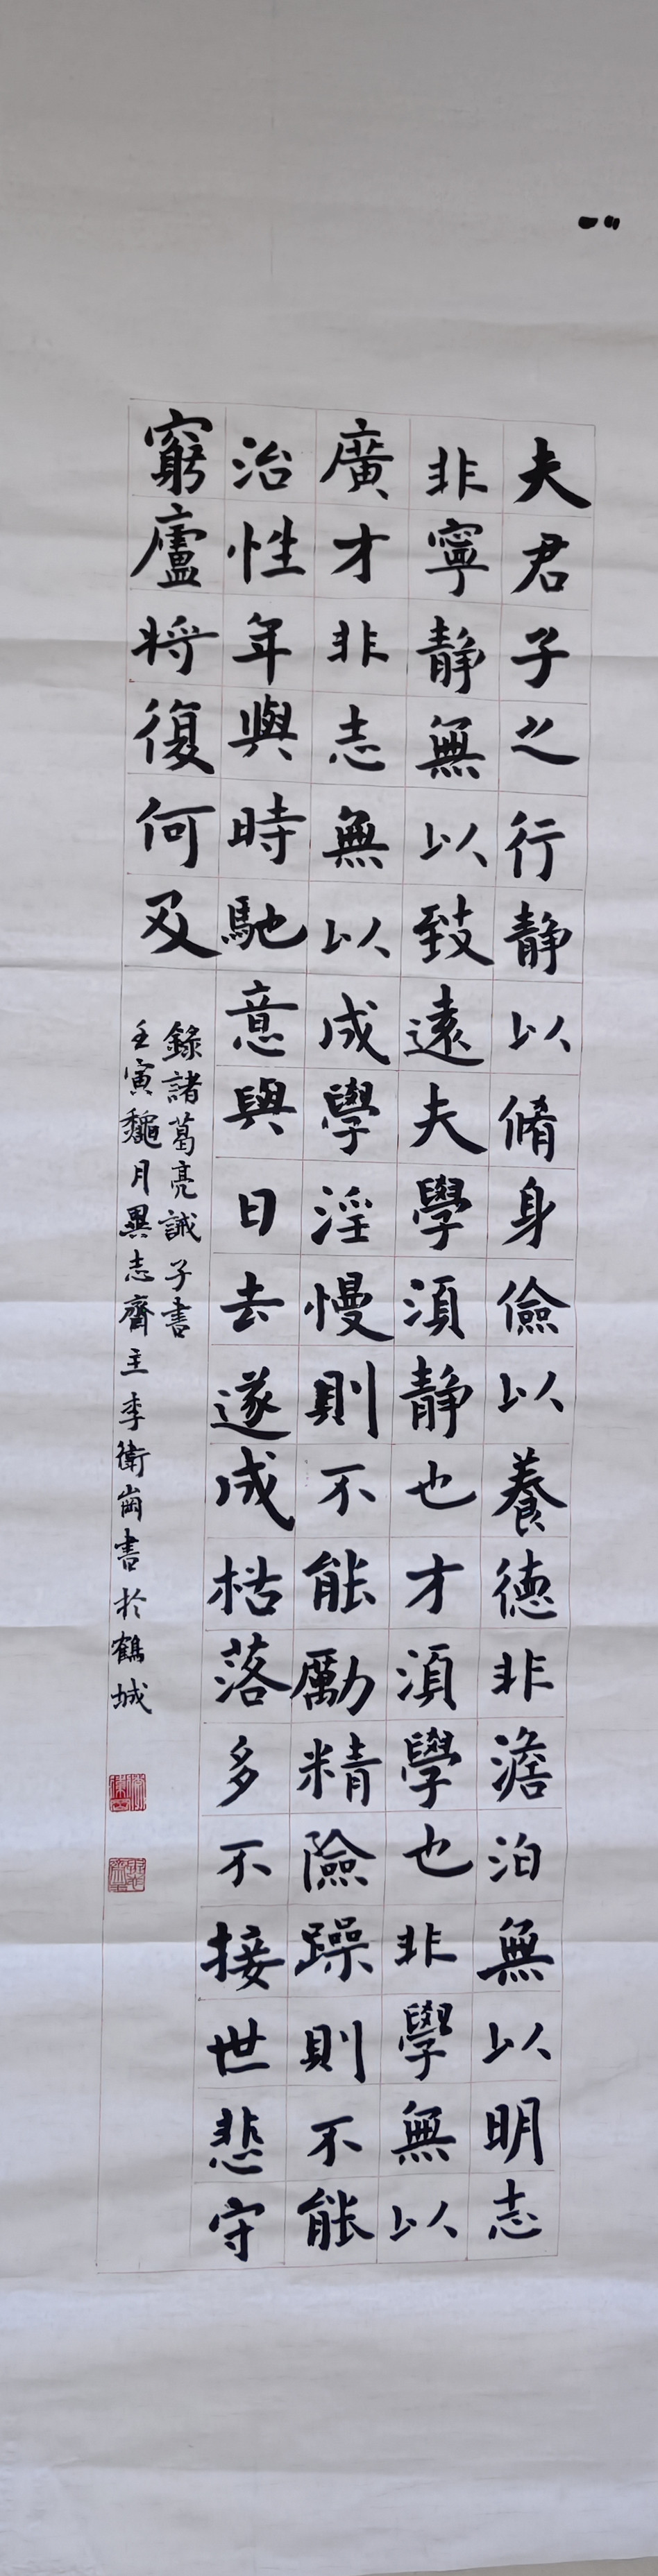 夫君子之行静以脩身儉以養德非澹泊無以明志
非寧静無以致遠夫學須静也才須學也非學無以
廣才非志無以成學淫慢則不能勵精險躁則不能
治性年與時馳意與日去遂成枯落多不接世悲守
窮廬將復何及
錄諸葛亮誡子書
壬寅龝月異志齋主李衛崗書於鶴城